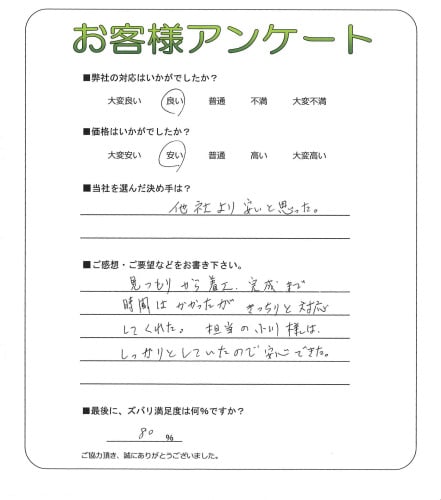 お客様アンケート
■弊社の対応はいかがでしたか？
大変良い 良い 普通 不満 大変不満
■価格はいかがでしたか？
大変安い 安い 普通 高い 大変高い
■当社を選んだ決め手は？
他社より安いと思った。
■ご感想・ご要望などをお書き下さい。
見つもりから着工、完成まで
時間はかかったが きっちりと対応
してくれた。 担当の小川様は、
しっかりとしていたので安心できた。
■最後に、ズバリ満足度は何%ですか？
80 %
ご協力頂き、誠にありがとうございました。